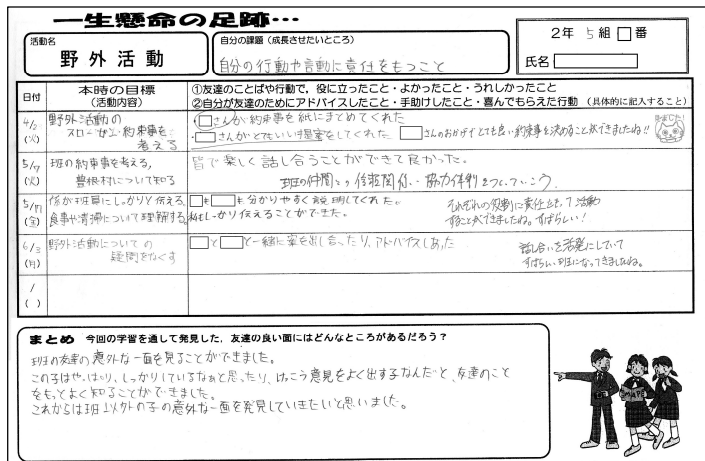 一生懸命の足跡…
活動名
野外活動
自分の課題（成長させたいところ）
自分の行動や言動に責任をもつこと
2年 5組 番
氏名
日付
本時の目標
（活動内容）
①友達のことばや行動で，役に立ったこと・よかったこと・うれしかったこと
②自分が友達のためにアドバイスしたこと・手助けしたこと・喜んでもらえた行動 （具体的に記入すること）
(火)
野外活動の
スローガン・約束事を
考える
・さんが約束事を紙にまとめてくれた
・さんがとてもいい提案をしてくれた
さんのおかげでとても良い約束事を決めることができましたね!!
5/7
(火)
班の約束事を考える，
豊根村について知る
皆で楽しく話し合うことができて良かった。
班の仲間との信頼関係・協力体制をつくっていこう。
5/17
(金)
係が班員にしっかりと伝える
食事や清掃について理解する
も も分かりやすく説明してくれた。
私もしっかり伝えることができた。
それぞれの役割に責任をもって活動
することができましたね。すばらしい！
6/3
(月)
野外活動についての
疑問をなくす
と と一緒に案を出し合ったり、アドバイスしあった
話し合いを活発にしていて
すばらしい班になってきましたね。
/
( )
まとめ 今回の学習を通して発見した，友達の良い面にはどんなところがあるだろう？
班の友達の意外な一面を見ることができました。
この子はやっぱり、しっかりしているなぁと思ったり、けっこう意見をよく出す子なんだと、友達のこと
をもっとよく知ることができました。
これからは班以外の子の意外な一面を発見していきたいと思いました。